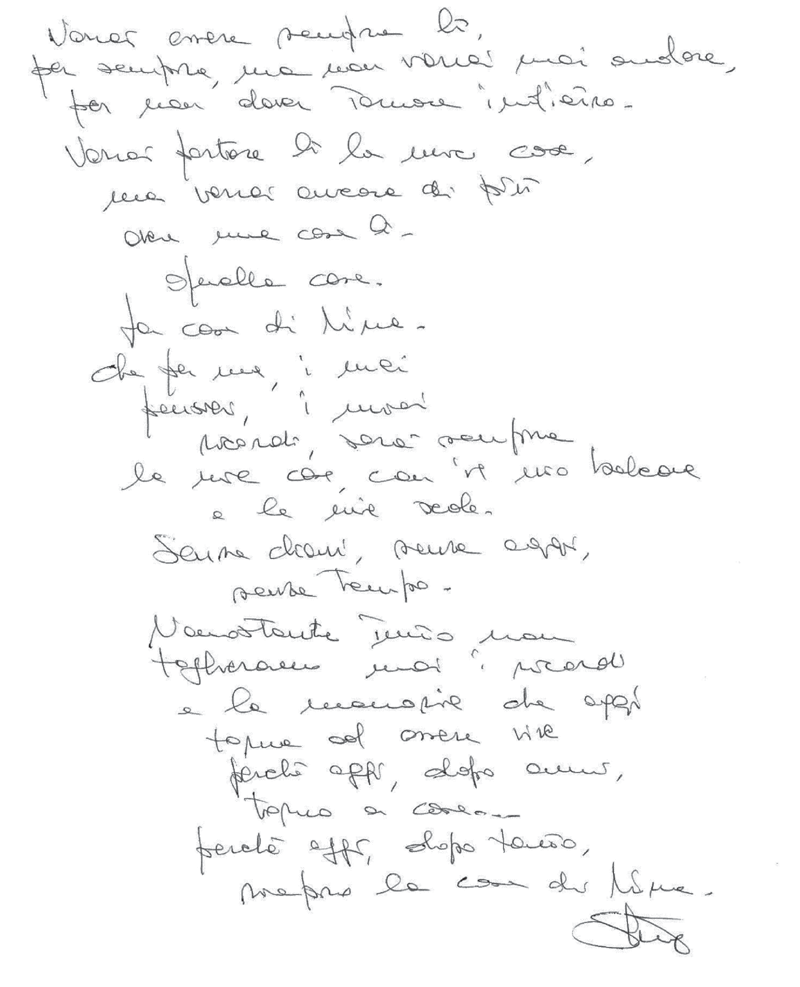 Vorrei essere sempre lì,
per sempre, ma non vorrei mai andare,
per non dover tornare indietro.
Vorrei portare lì la mia casa,
ma vorrei ancora di più
avere una casa lì.
Quella casa.
La casa di Nina.
che per me, i miei
pensieri, i miei
ricordi, sarà sempre
la mia casa, con il mio balcone
e le mie scale.
Senza domani, senza oggi,
senza tempo.
Nonostante tutto non
toglieranno mai i ricordi
e la memoria che oggi
torna ad essere viva
perché oggi, dopo anni,
torno a casa...
perché oggi, dopo tanto,
riapro la casa di Nina.